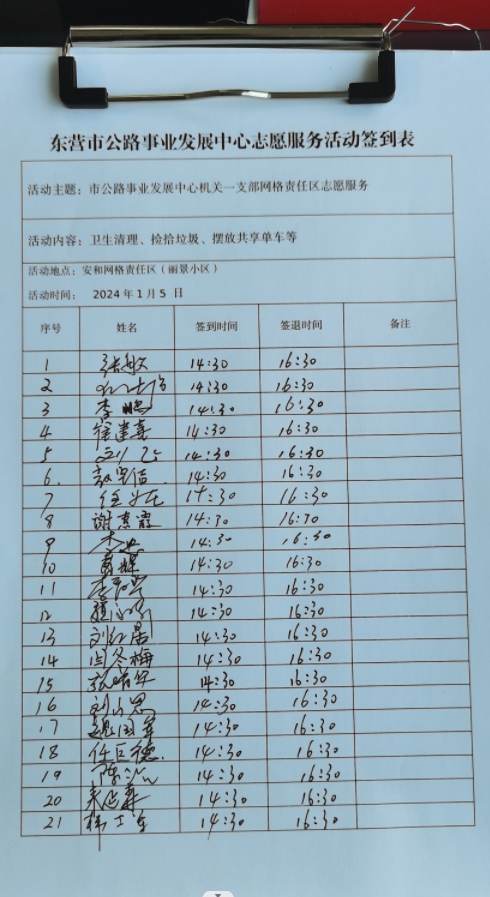 东营市公路事业发展中心志愿服务活动签到表
活动主题：市公路事业发展中心机关一支部网格责任区志愿服务
活动内容：卫生清理、捡拾垃圾、摆放共享单车等
活动地点：安和网格责任区（丽景小区）
活动时间： 2024年1月5 日
序号 姓名 签到时间 签退时间 备注
1 张敏 14:30 16:30
2 14:30 16:30
3 李 14:30 16:30
4 崔建喜 14:30 16:30
5 14:30 16:30
6. 14:30 16:30
7 任 14:30 16:30
8 谢惠霞 14:30 16:30
9 14:30 16:30
10 14:30 16:30
11 14:30 16:30
12 14:30 16:30
13 刘红 14:30 16:30
14 闫冬梅 14:30 16:30
15 14:30 16:30
16 刘 14:30 16:30
17 14:30 16:30
18 任巨德 14:30 16:30
19 陈 14:30 16:30
20 14:30 16:30
21 14:30 16:30